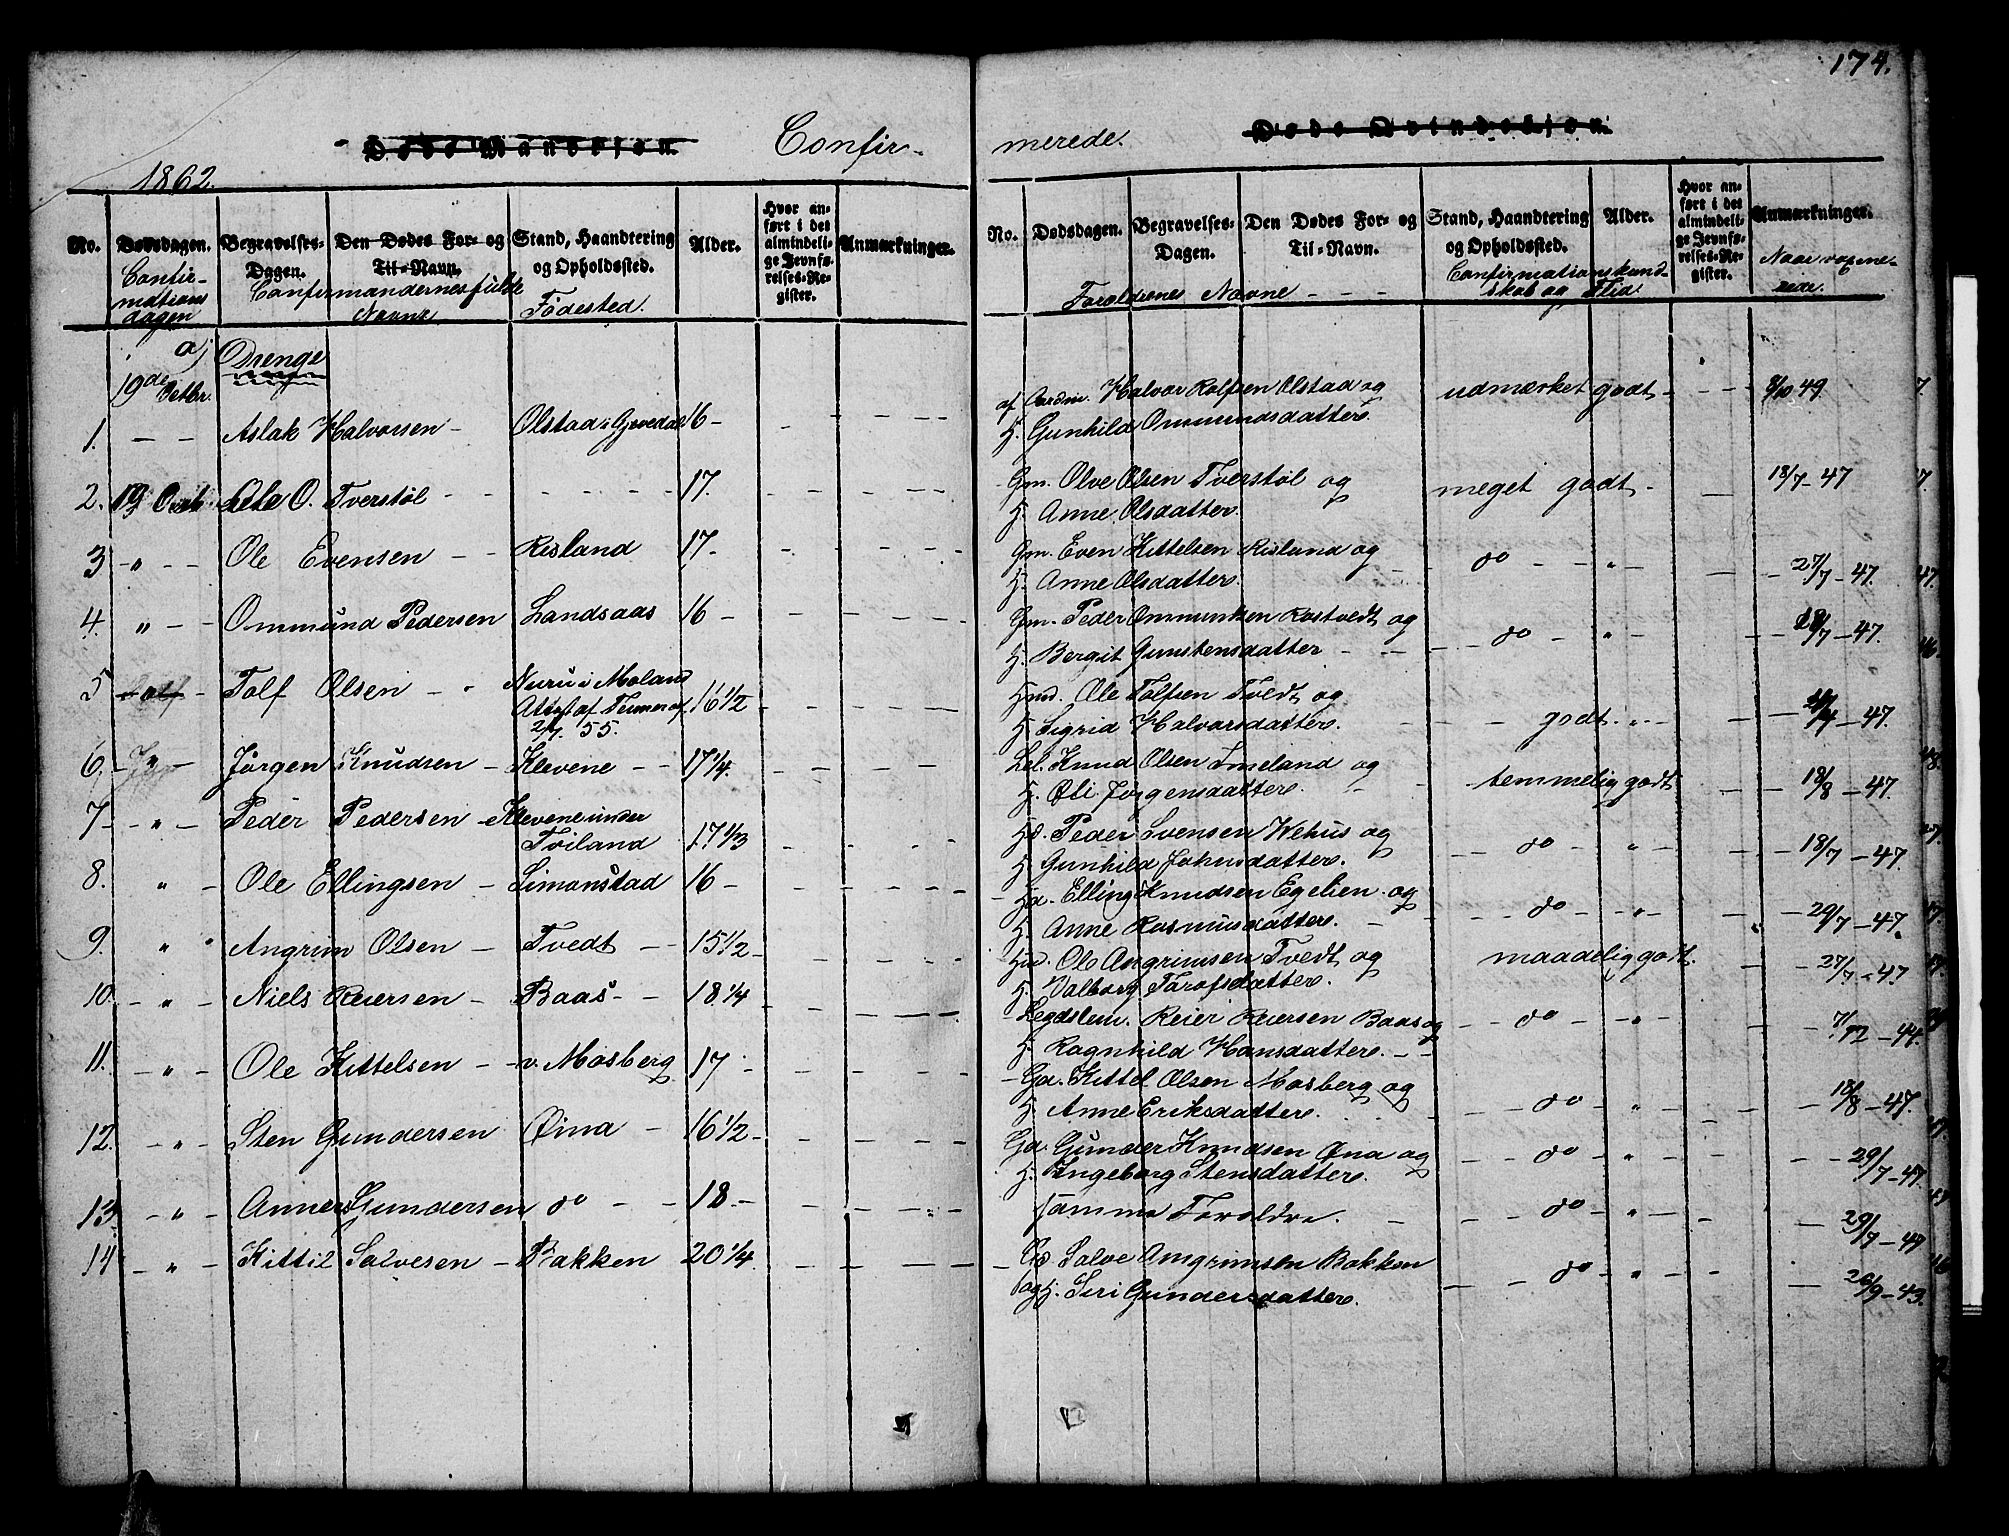 174.
Døde Mandkjøn. Confir-
merede. Døde Qvindekjøn.
1862.
No. Dødsdagen. Begravelses-Dagen. Den Dødes For- og Til-Navn. Stand, Haandtering og Opholdssted. Alder. Hvor anført i det almindelige Jevnførelses-Register. Anmærkninger.
Confirmations dagen Confirmandernes fulde Navne Fødested.
No. Dødsdagen. Begravelses-Dagen. Den Dødes For- og Til-Navn. Stand, Haandtering og Opholdssted. Alder. Hvor anført i det almindelige Jevnførelses-Register. Anmærkninger.
Forældrenes Navne - - - Confirmationskundskab og Flid. Naar vaccinerede.
a) Drenge
19de Octbr.
1. - - Aslak Halvorsen - Olstad i Gjøvedal 16 -
af Gaardm. Halvor Rolfsen Olstad og udmærket godt - - - 8/10 49
H. Gunhild Ommundsdatter.
2. 19 Octb. Ole O. Tverstøl - - 17.
Gm. Olve Olsen Tverstøl og meget godt - 18/7 - 47
H. Anne Olsdatter.
3 - " - - Ole Evensen - - Risland 17 -
Gm. Even Kittelsen Risland og do - - " - 27/7 - 47.
H. Anne Olsdatter.
4. " - - Ommund Pedersen Landsaas 16 -
Gm. Peder Ommundsen Rostvedt og do - " - 18/7 - 47.
H. Bergit Gunstensdatter
5 Tolf Olsen - - Nuru i Moland 16 1/2
Attest af
55.
Hmd. Ole Tolfsen Tvedt og godt - " - 47.
H. Sigrid Halvorsdatter.
6. - " - Jørgen Knudsen - Klevene - - 17 1/4.
Lel. Knud Olsen Imeland og temmelig godt 18/8 - 47.
H. Oli Jørgensdatter.
7 - - " - Peder Pedersen - Klevene under 17 1/3
Toiland
Hd. Peder Svensen Wehus og do " 18/7 - 47.
H. Gunhild Johnsdatter.
8. " - Ole Ellingsen - Simonstad 16 -
Hd. Elling Knudsen Egelien og do - " - 29/7 - 47.
H. Anne Rasmusdatter.
9. " Angrim Olsen - Tvedt - - 15 1/2 -
Hd. Ole Angrimsen Tvedt og maadelig godt. 27/7 - 47
H. Valborg Tarofsdatter.
10. - " - Niels Reiersen - Baas - - 18 1/4
Legdslem. Reier Reiersen Baas og do - " - 7/12 - 44.
H. Ragnhild Hansdatter. - -
11. - " - Ole Kittelsen - v. Mosberg 17 -
Gd. Kittel Olsen Mosberg og do - " - 18/8 - 47.
H. Anne Eriksdatter.
12. - " Sten Gundersen Øina - 16 1/2 -
Gd. Gunder Knudsen Øna og do - " - 29/7 - 47.
H. Ingeborg Stensdatter.
13. - " - Anners Gundersen do - - 18 -
samme Forældre. do - " - 29/7 - 47
14 - " - Kittil Salvesen - Bakken 20 1/4
Gd Salve Angrimsen Bakken do - " - 26/9 - 43.
og H. Siri Gundersdatter.